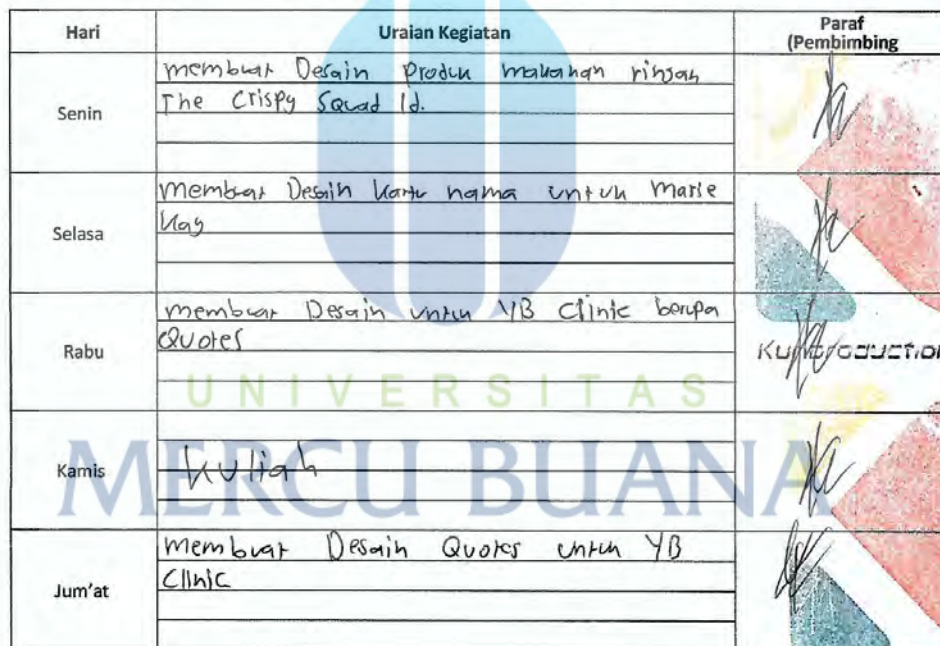 Hari Uraian Kegiatan Paraf
(Pembimbing
Senin
membuat Desain Produk makanan ringan
The Crispy Squad Id.
Selasa
membuat Desain kartu nama untuk Marie
Kay
Rabu
membuat Desain untuk YB Clinic berupa
Quotes
Kunproduction
UNIVERSITAS
MERCU BUANA
Kamis
kuliah
Jum'at
membuat Desain Quotes untuk YB
Clinic